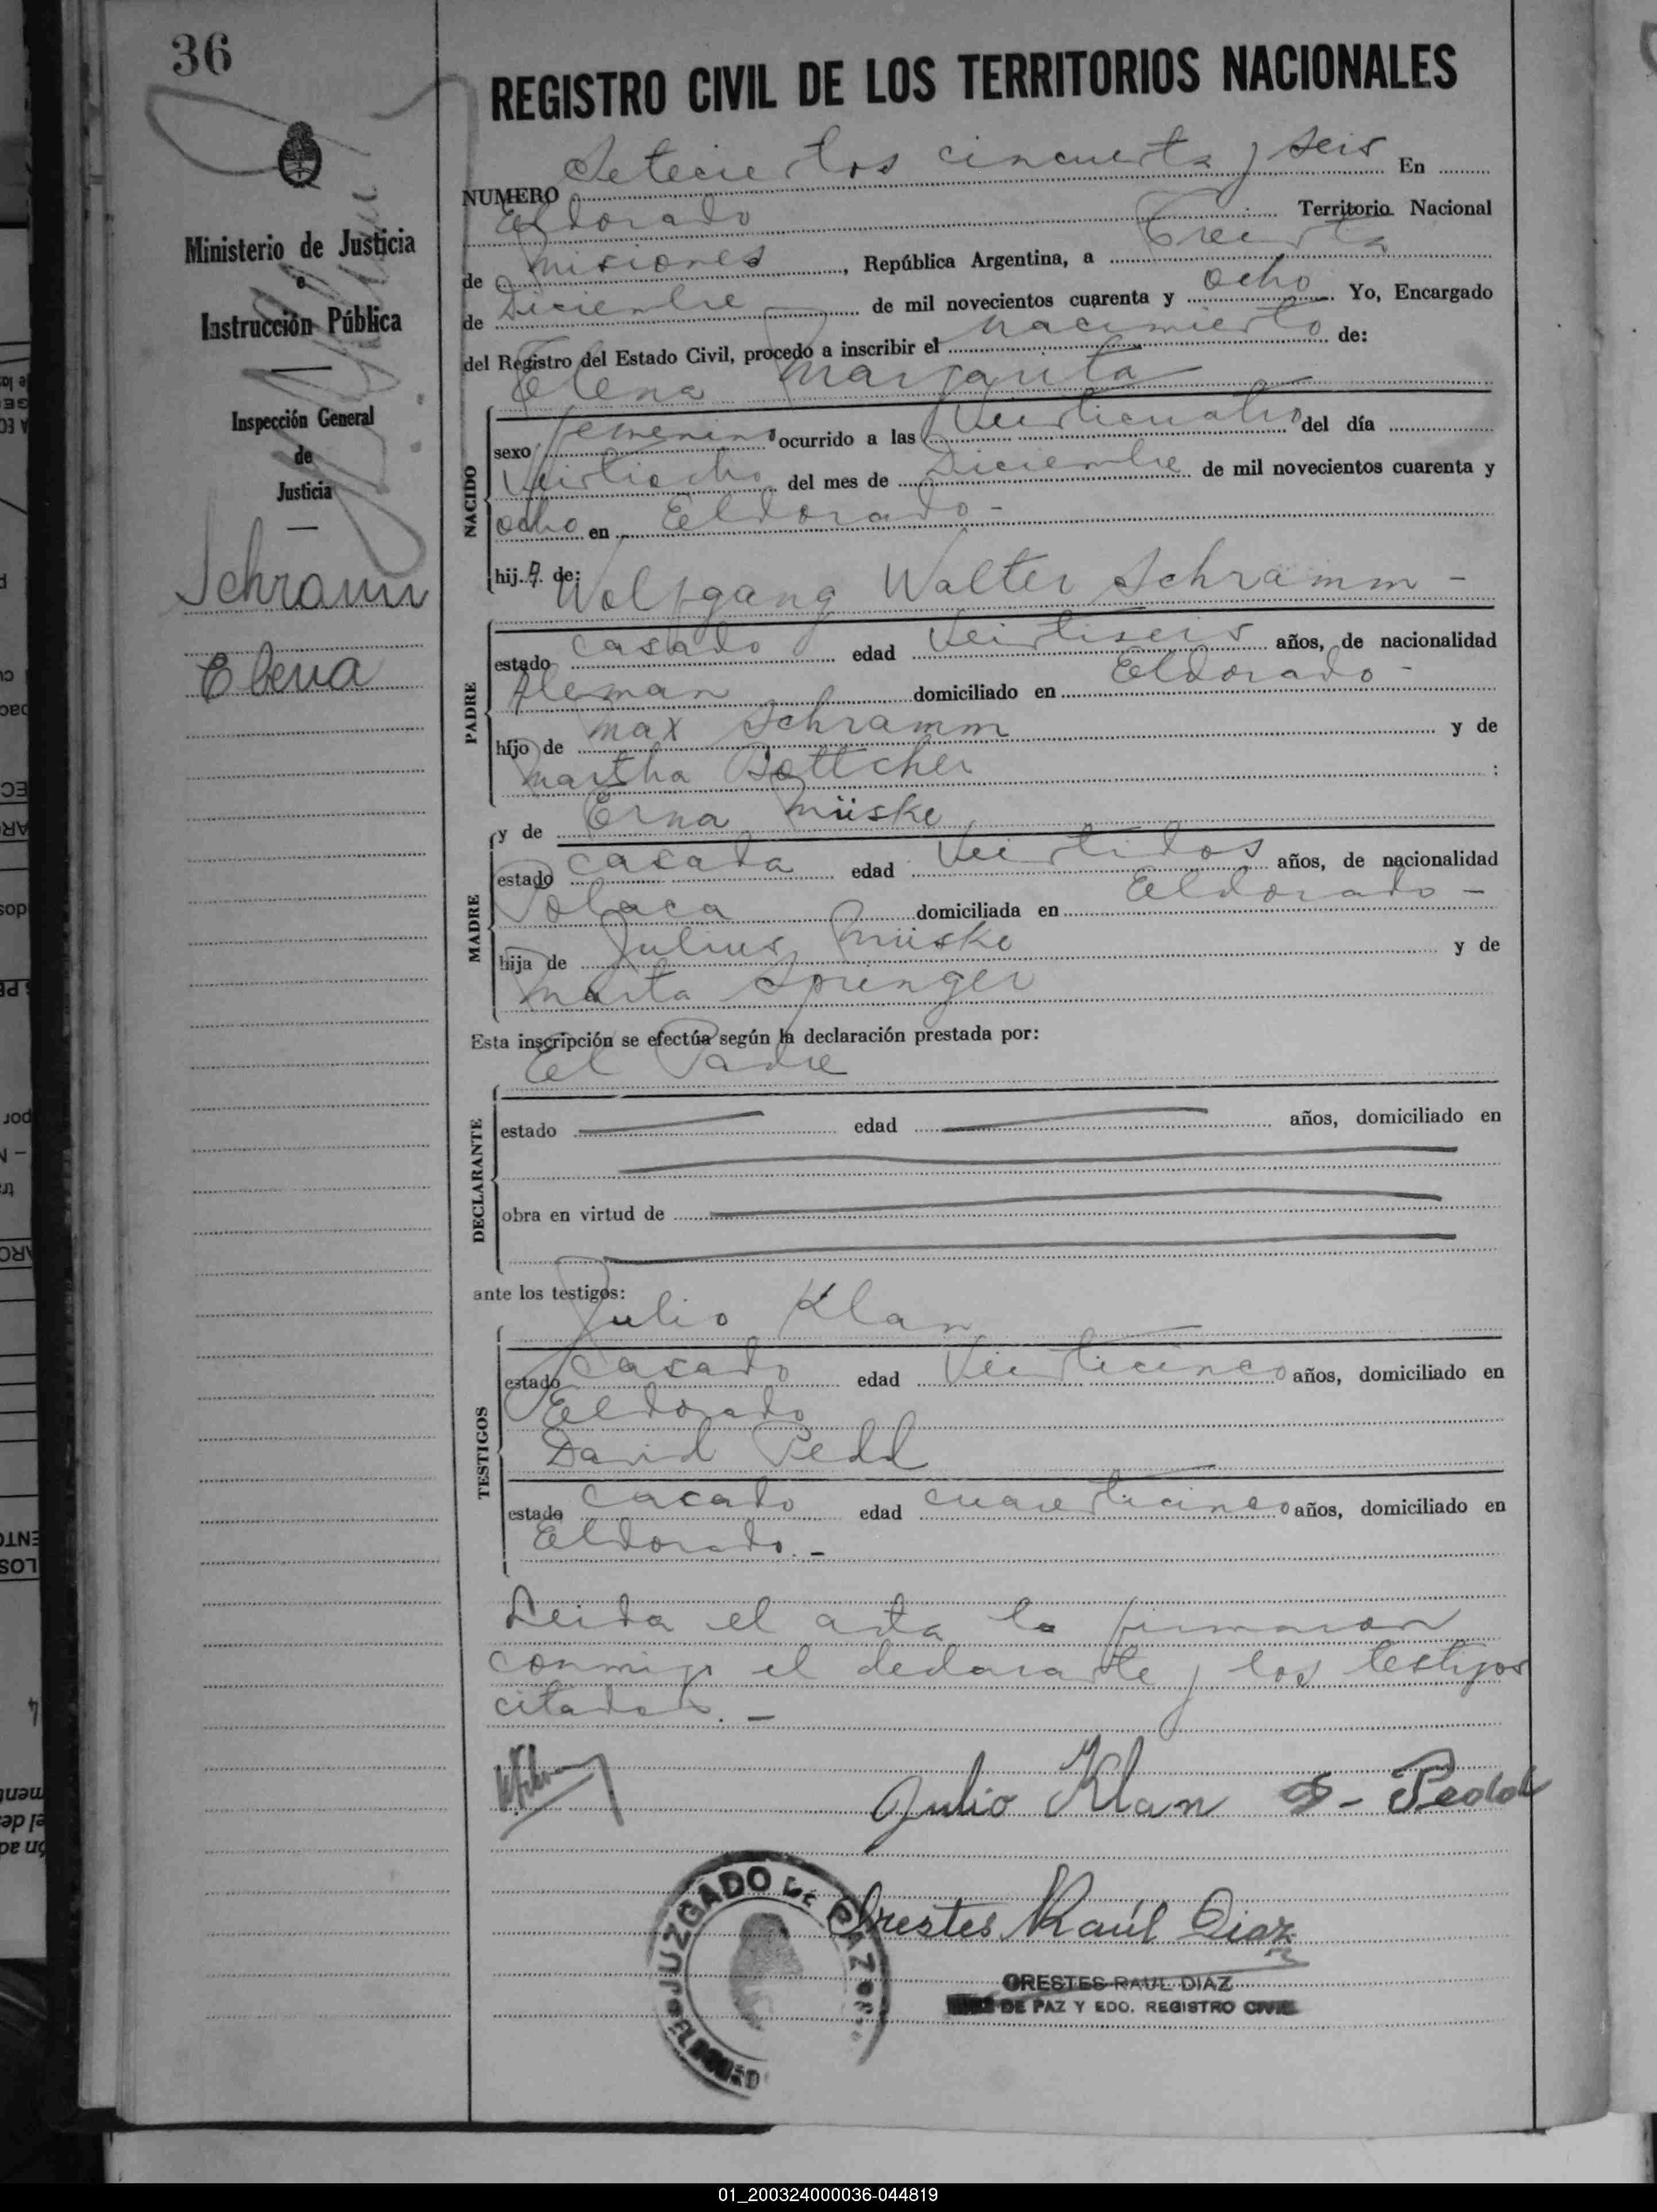 36
REGISTRO CIVIL DE LOS TERRITORIOS NACIONALES
NUMERO Setecientos cincuenta y seis En
Eldorado Territorio Nacional
de Misiones, República Argentina, a Treinta
de Diciembre de mil novecientos cuarenta y ocho. Yo, Encargado
del Registro del Estado Civil, procedo a inscribir el nacimiento de:
Elena Margarita
NACIDO
sexo femenino ocurrido a las Veinticuatro del día
Veintiocho del mes de Diciembre de mil novecientos cuarenta y
ocho en Eldorado-
hij.a. de: Wolfgang Walter Schramm -
PADRE
estado casado edad Veintiseis años, de nacionalidad
Aleman domiciliado en Eldorado-
hijo de Max Schramm y de
Martha Bottcher :
MADRE
y de Erna Müske
estado casada edad Veintidos años, de nacionalidad
Polaca domiciliada en Eldorado -
hija de Julius Müske y de
Marta Springer
Esta inscripción se efectúa según la declaración prestada por:
El Padre
DECLARANTE
estado edad años, domiciliado en
obra en virtud de
ante los testigos:
Julio Klan
TESTIGOS
estado casado edad Veinticinco años, domiciliado en
Eldorado
David Pedd
estado casado edad cuarenticinco años, domiciliado en
Eldorado.-
Leida el acta la firmaron
conmigo el declarante y los testigos
citados. -
Julio Klan D- Pedd
Orestes Raúl Diaz
ORESTES RAUL DIAZ
DE PAZ Y EDO. REGISTRO CIVIL
JUZGADO DE PAZ
ELDORADO
Ministerio de Justicia
e
Instrucción Pública
Inspección General
de
Justicia
Schramm
Elena
01_200324000036-044819